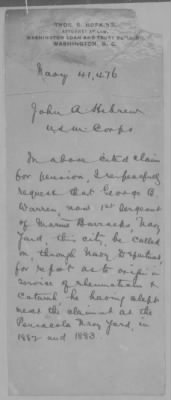 THOS. S. HOPKINS,
ATTORNEY AT LAW,
WASHINGTON LOAN AND TRUST BUILDING,
WASHINGTON, D. C.
Navy 41,476
John A Hebrew
U S M Corps
In above cited claim
for pension, I respectfully
request that George B.
Warren, now 1st Sergeant
of Marine Barracks, Navy
Yard, this city, be called
on through Navy Department,
for report as to origin in
service of rheumatism &
catarrh he having slept
near the claimant at the
Pensacola Navy Yard, in
1882 and 1883.